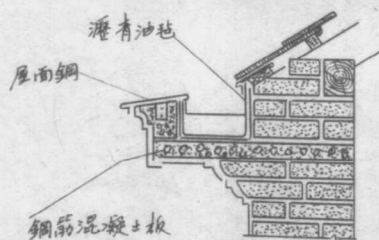 瀝青油毡
屋面鋼
鋼筋混凝土板